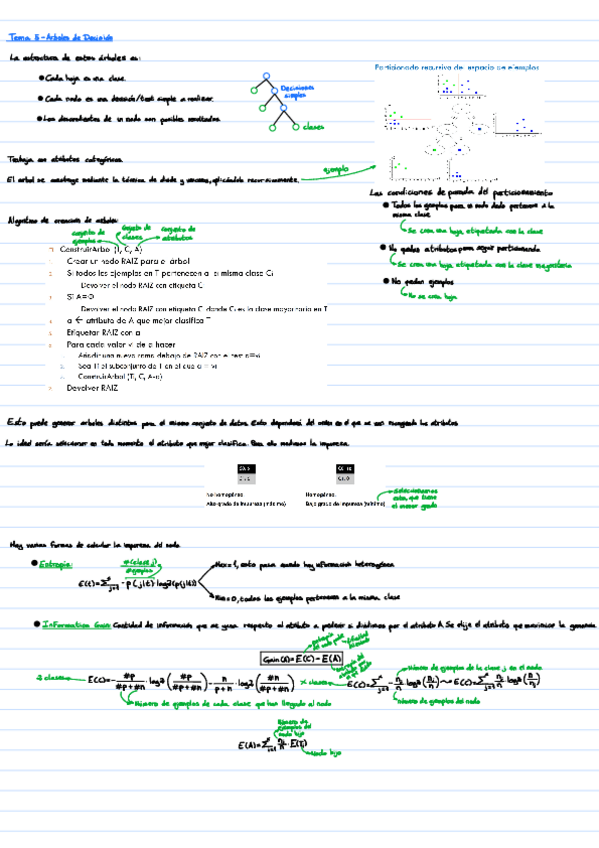 Tema 5 - Arboles de Decisión
La estructura de estos árboles es:
Cada hoja es una clase.
Cada nodo es una decisión/test simple a realizar.
Los descendientes de un nodo son posibles resultados.
Decisiones simples
clases
Particionado recursivo del espacio de ejemplos
Trabaja con atributos categóricos.
El arbol se construye mediante la técnica de divide y vencerás, aplicándola recursivamente.
ejemplo
Las condiciones de parada del particionamiento
Todos los ejemplos para un nodo dado pertenecen a la misma clase
Se crea una hoja etiquetada con la clase
No quedan atributos para seguir particionando
Se crea una hoja etiquetada con la clase mayoritaria
No quedan ejemplos
No se crea hoja
Algoritmo de creación de árboles:
conjunto de ejemplos
conjunto de clases
conjunto de atributos
ConstruirArbol (T, C, A)
Crear un nodo RAIZ para el árbol
Si todos los ejemplos en T pertenecen a la misma clase Ci
Devolver el nodo RAIZ con etiqueta Ci
Si A=0
Devolver el nodo RAIZ con etiqueta Ci donde Ci es la clase mayoritaria en T
a ← atributo de A que mejor clasifica T
Etiquetar RAIZ con a
Para cada valor vi de a hacer
Añadir una nueva rama debajo de RAIZ con el test a=vi
Sea Ti el subconjunto de T en el que a = vi
ConstruirArbol (Ti, C, A-a)
Devolver RAIZ
Esto puede generar arboles distintos para el mismo conjunto de datos. Esto dependerá del orden en el que se van escogiendo los atributos
Lo ideal sería seleccionar en todo momento el atributo que mejor clasifica. Para ello mediremos la impureza.
No homogéneo.
Alto grado de impureza (máximo)
Homogéneo.
Bajo grado de impureza (mínimo)
Seleccionamos estos que tiene el menor grado
Hay varias formas de calcular la impureza del nodo
Entropía:
#(clase j)
#ejemplos
E(t)=Σ -p(j|t)·log2(p(j|t))
Max=1, esto pasa cuando hay información heterogénea
Min=0, todos los ejemplos pertenecen a la misma clase
Information Gain: Cantidad de información que se gana respecto al atributo a predecir si dividimos por el atributo A. Se elije el atributo que maximizar la ganancia.
Gain(A)=E(C)-E(A)
2 clases
Número de ejemplos de cada clase que han llegado al nodo
x clases
Número de ejemplos de la clase j en el nodo
Número de ejemplos del nodo
Número de ejemplos del nodo hijo
Nodo hijo